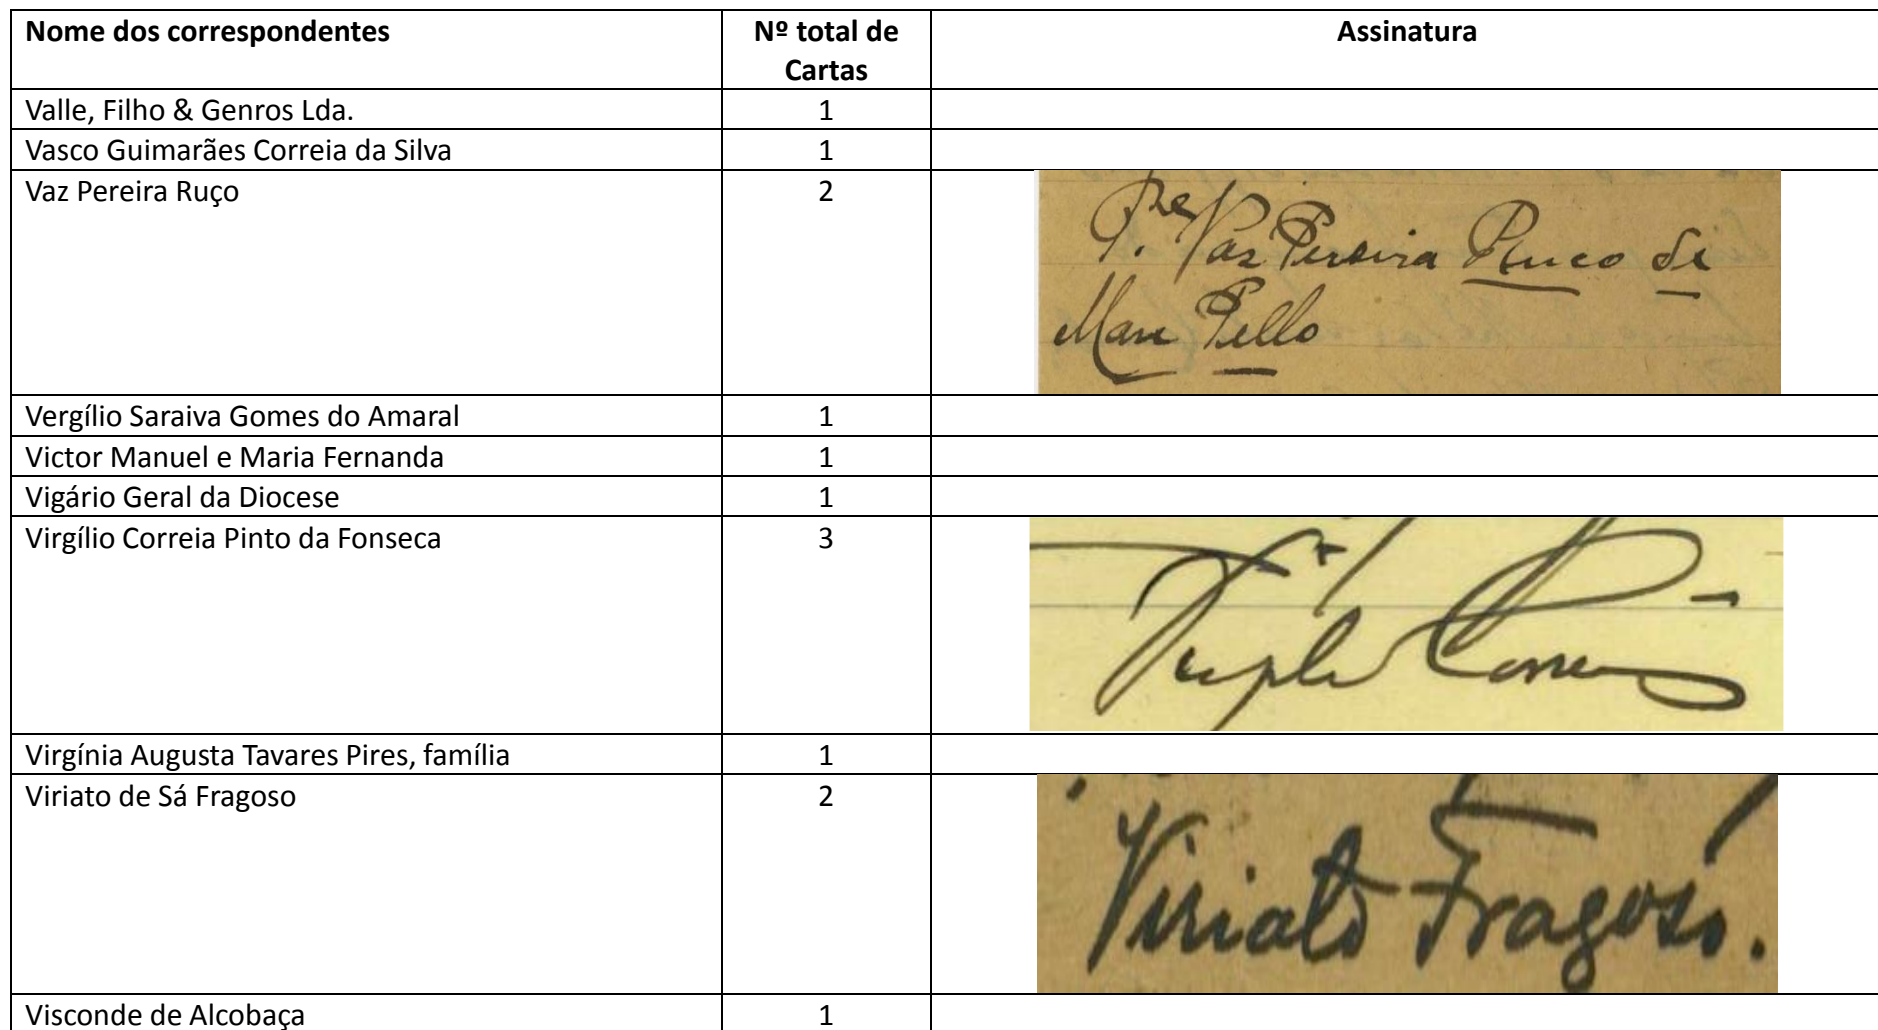 Nome dos correspondentes
Nº total de
Cartas
Assinatura
Valle, Filho & Genros Lda.
1
Vasco Guimarães Correia da Silva
1
Vaz Pereira Ruço
2
Pᵉ Vaz Pereira Ruco de
Mau Pello
Vergílio Saraiva Gomes do Amaral
1
Victor Manuel e Maria Fernanda
1
Vigário Geral da Diocese
1
Virgílio Correia Pinto da Fonseca
3
Virgílio Correia
Virgínia Augusta Tavares Pires, família
1
Viriato de Sá Fragoso
2
Viriato Fragoso.
Visconde de Alcobaça
1